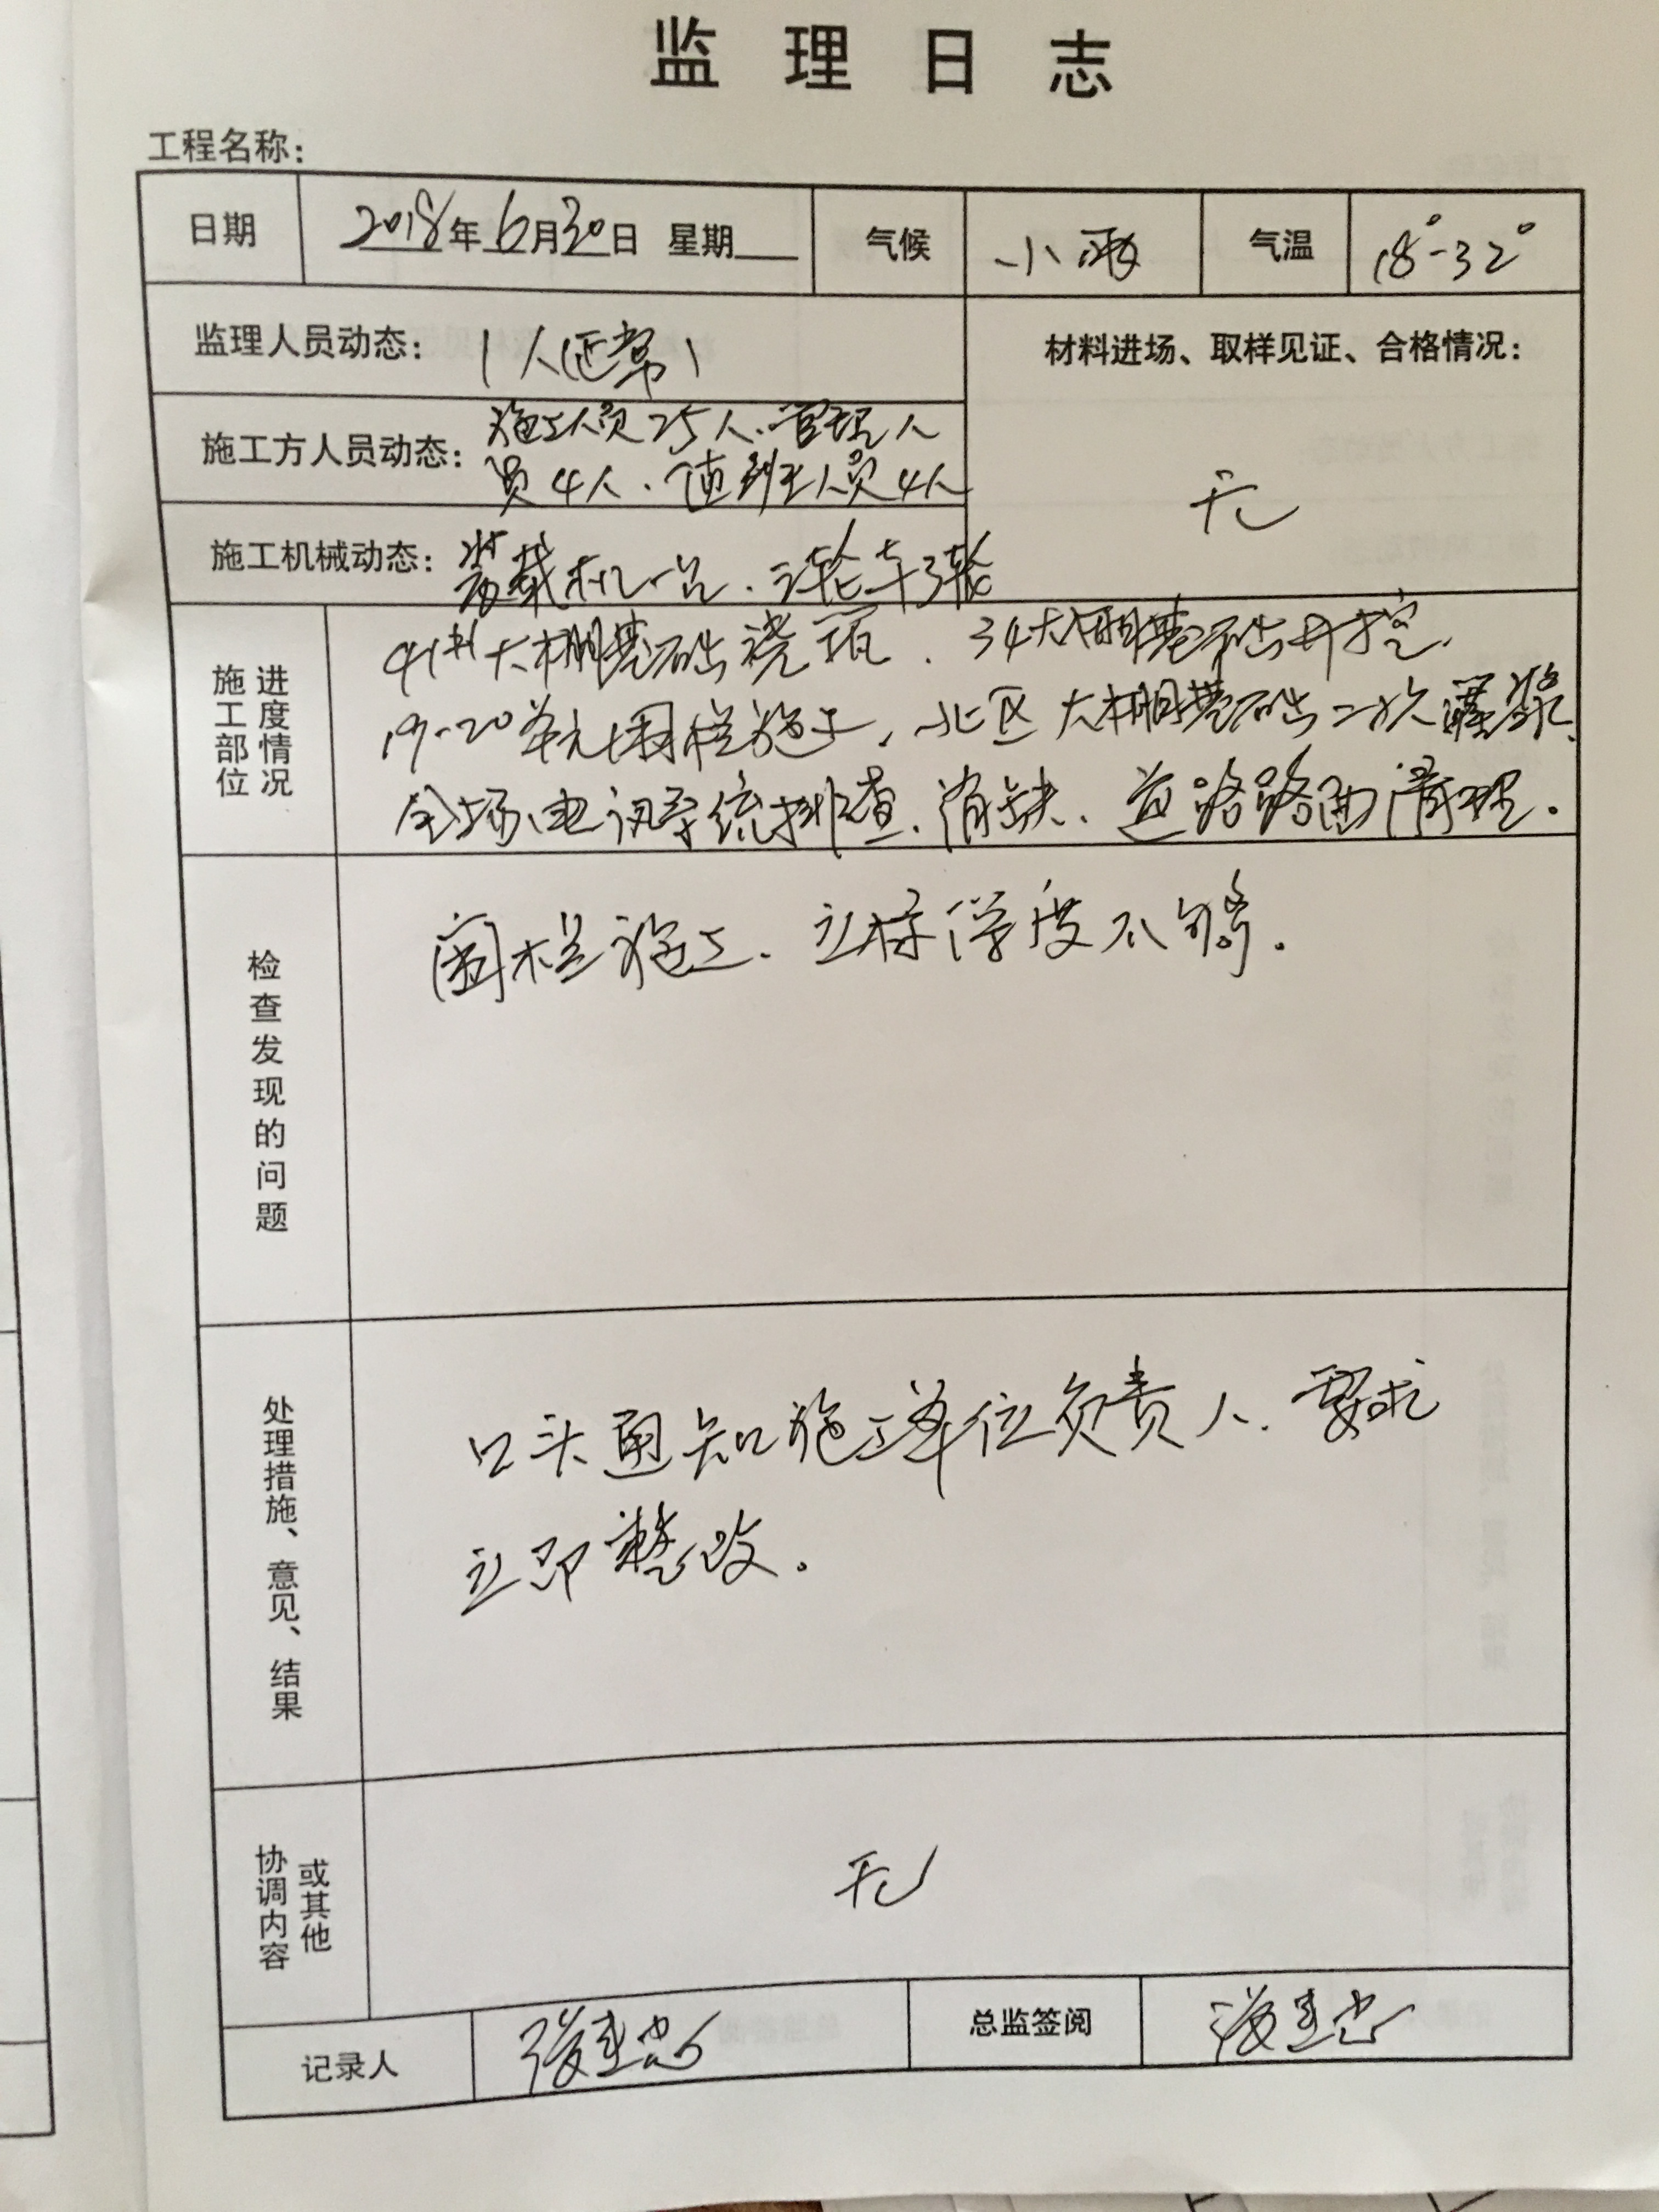 监理日志
工程名称：
日期 2018年6月30日 星期 气候 小雨 气温 18°-32°
监理人员动态：1人（正常） 材料进场、取样见证、合格情况：
施工方人员动态：施工人员25人、管理人
员4人、值班人员4人
无
施工机械动态：装载机一台、三轮车3辆
施工部位 进度情况
41#大棚基础浇筑、34大棚基础开挖、
19-20单元围栏施工、北区大棚基础二次灌浆、
全场电讯系统排查、消缺、道路路面清理。
检查发现的问题
围栏施工、立柱厚度不够。
处理措施、意见、结果
口头通知施工单位负责人、要求
立即整改。
协调内容 或其他
无
记录人 张建忠 总监签阅 张建忠